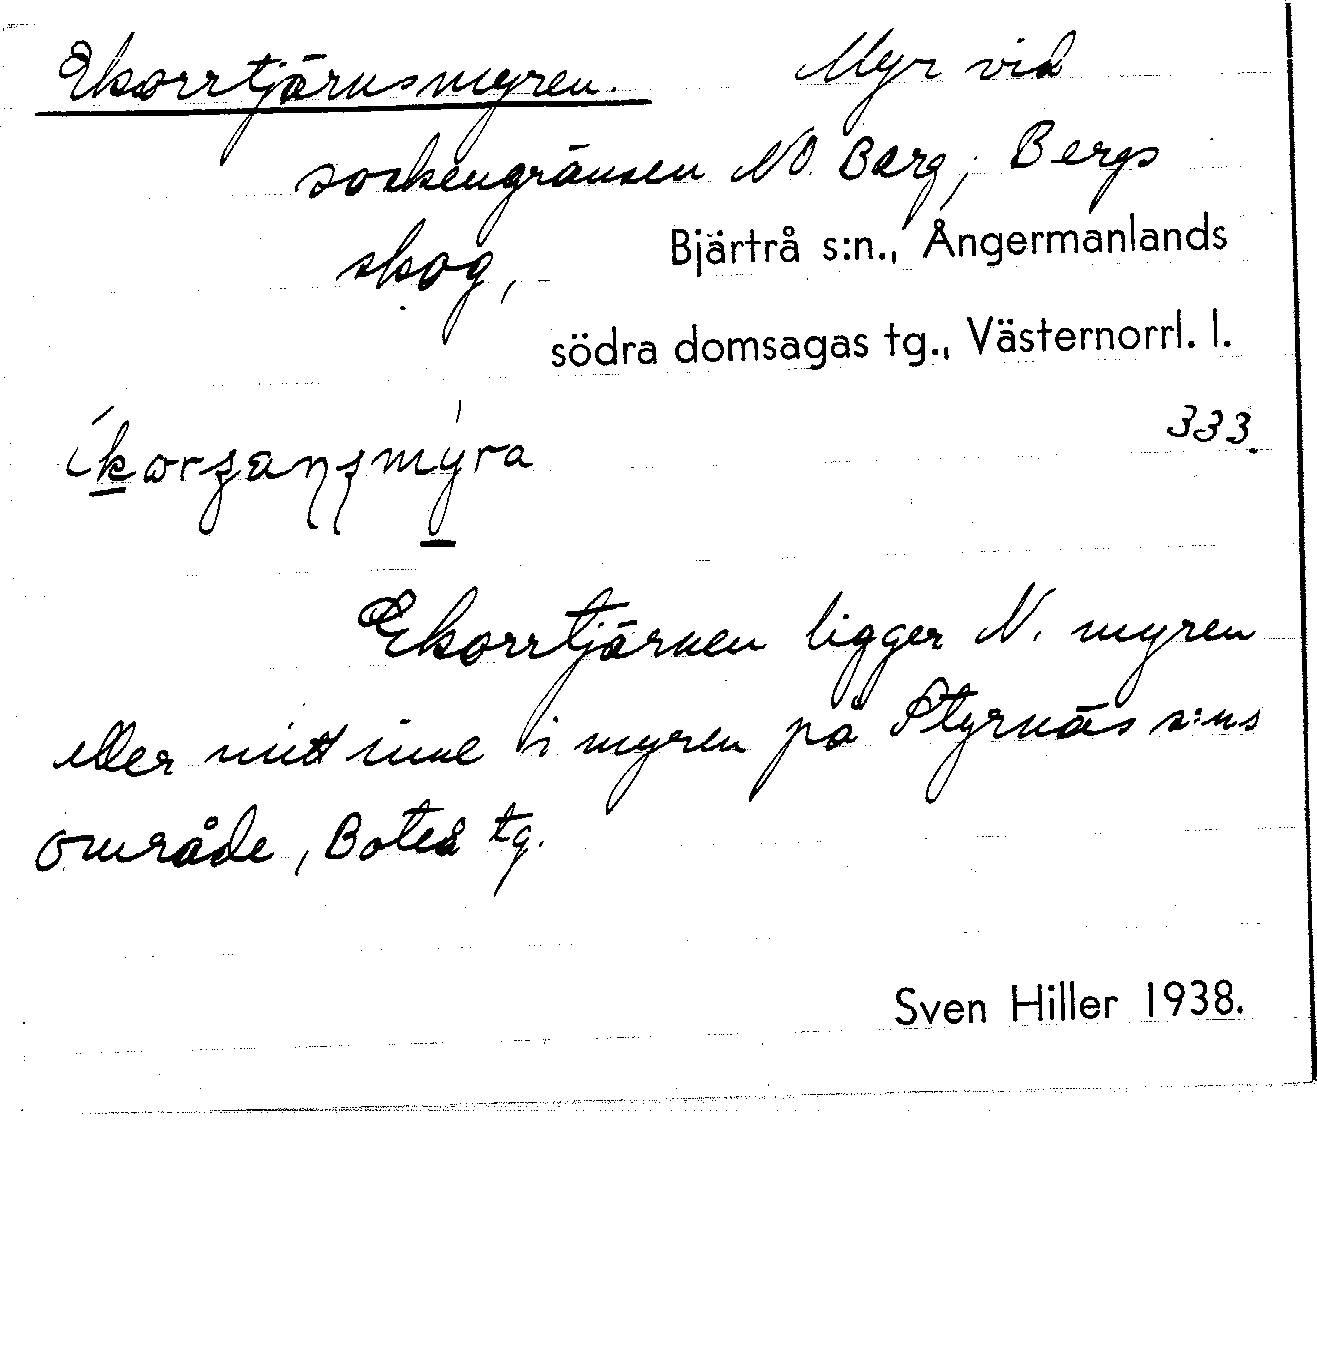 Ekorrtjärnsmyren. Myr vid
sockengränsen NO Berg; Bergs
skog, Bjärtrå s:n., Ångermanlands
södra domsagas tg., Västernorrl. l.
333.
Ekorrtjärnen ligger N. myren
eller mitt inne i myren på Styrnäs s:ns
område, Boteå tg.
Sven Hiller 1938.